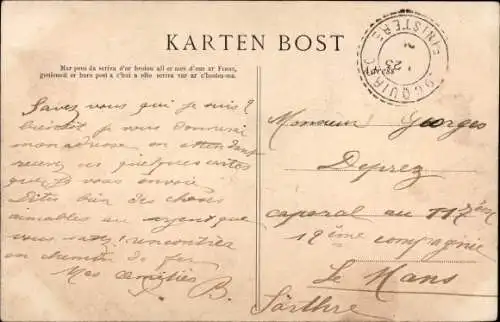 KARTEN BOST
Mar peus da scriva d'ar boulou all er mez d'eus ar Frans,
ar bars post a c'hui a ello scriva var ar
FINISTERE
23
Adress
Savez vous qui je suis ?
bientôt je vous donnerai
mon adresse, en attendant
recevez ces quelques cartes
que je vous envoie
Dites bien des choses
aimables au sergent que
vous savez ! rencontrer
en chemin de fer
Mes amitiés
B.
Monsieur Georges
Deprez
caporal au 117ème
12ème compagnie
Le Mans
Sarthe